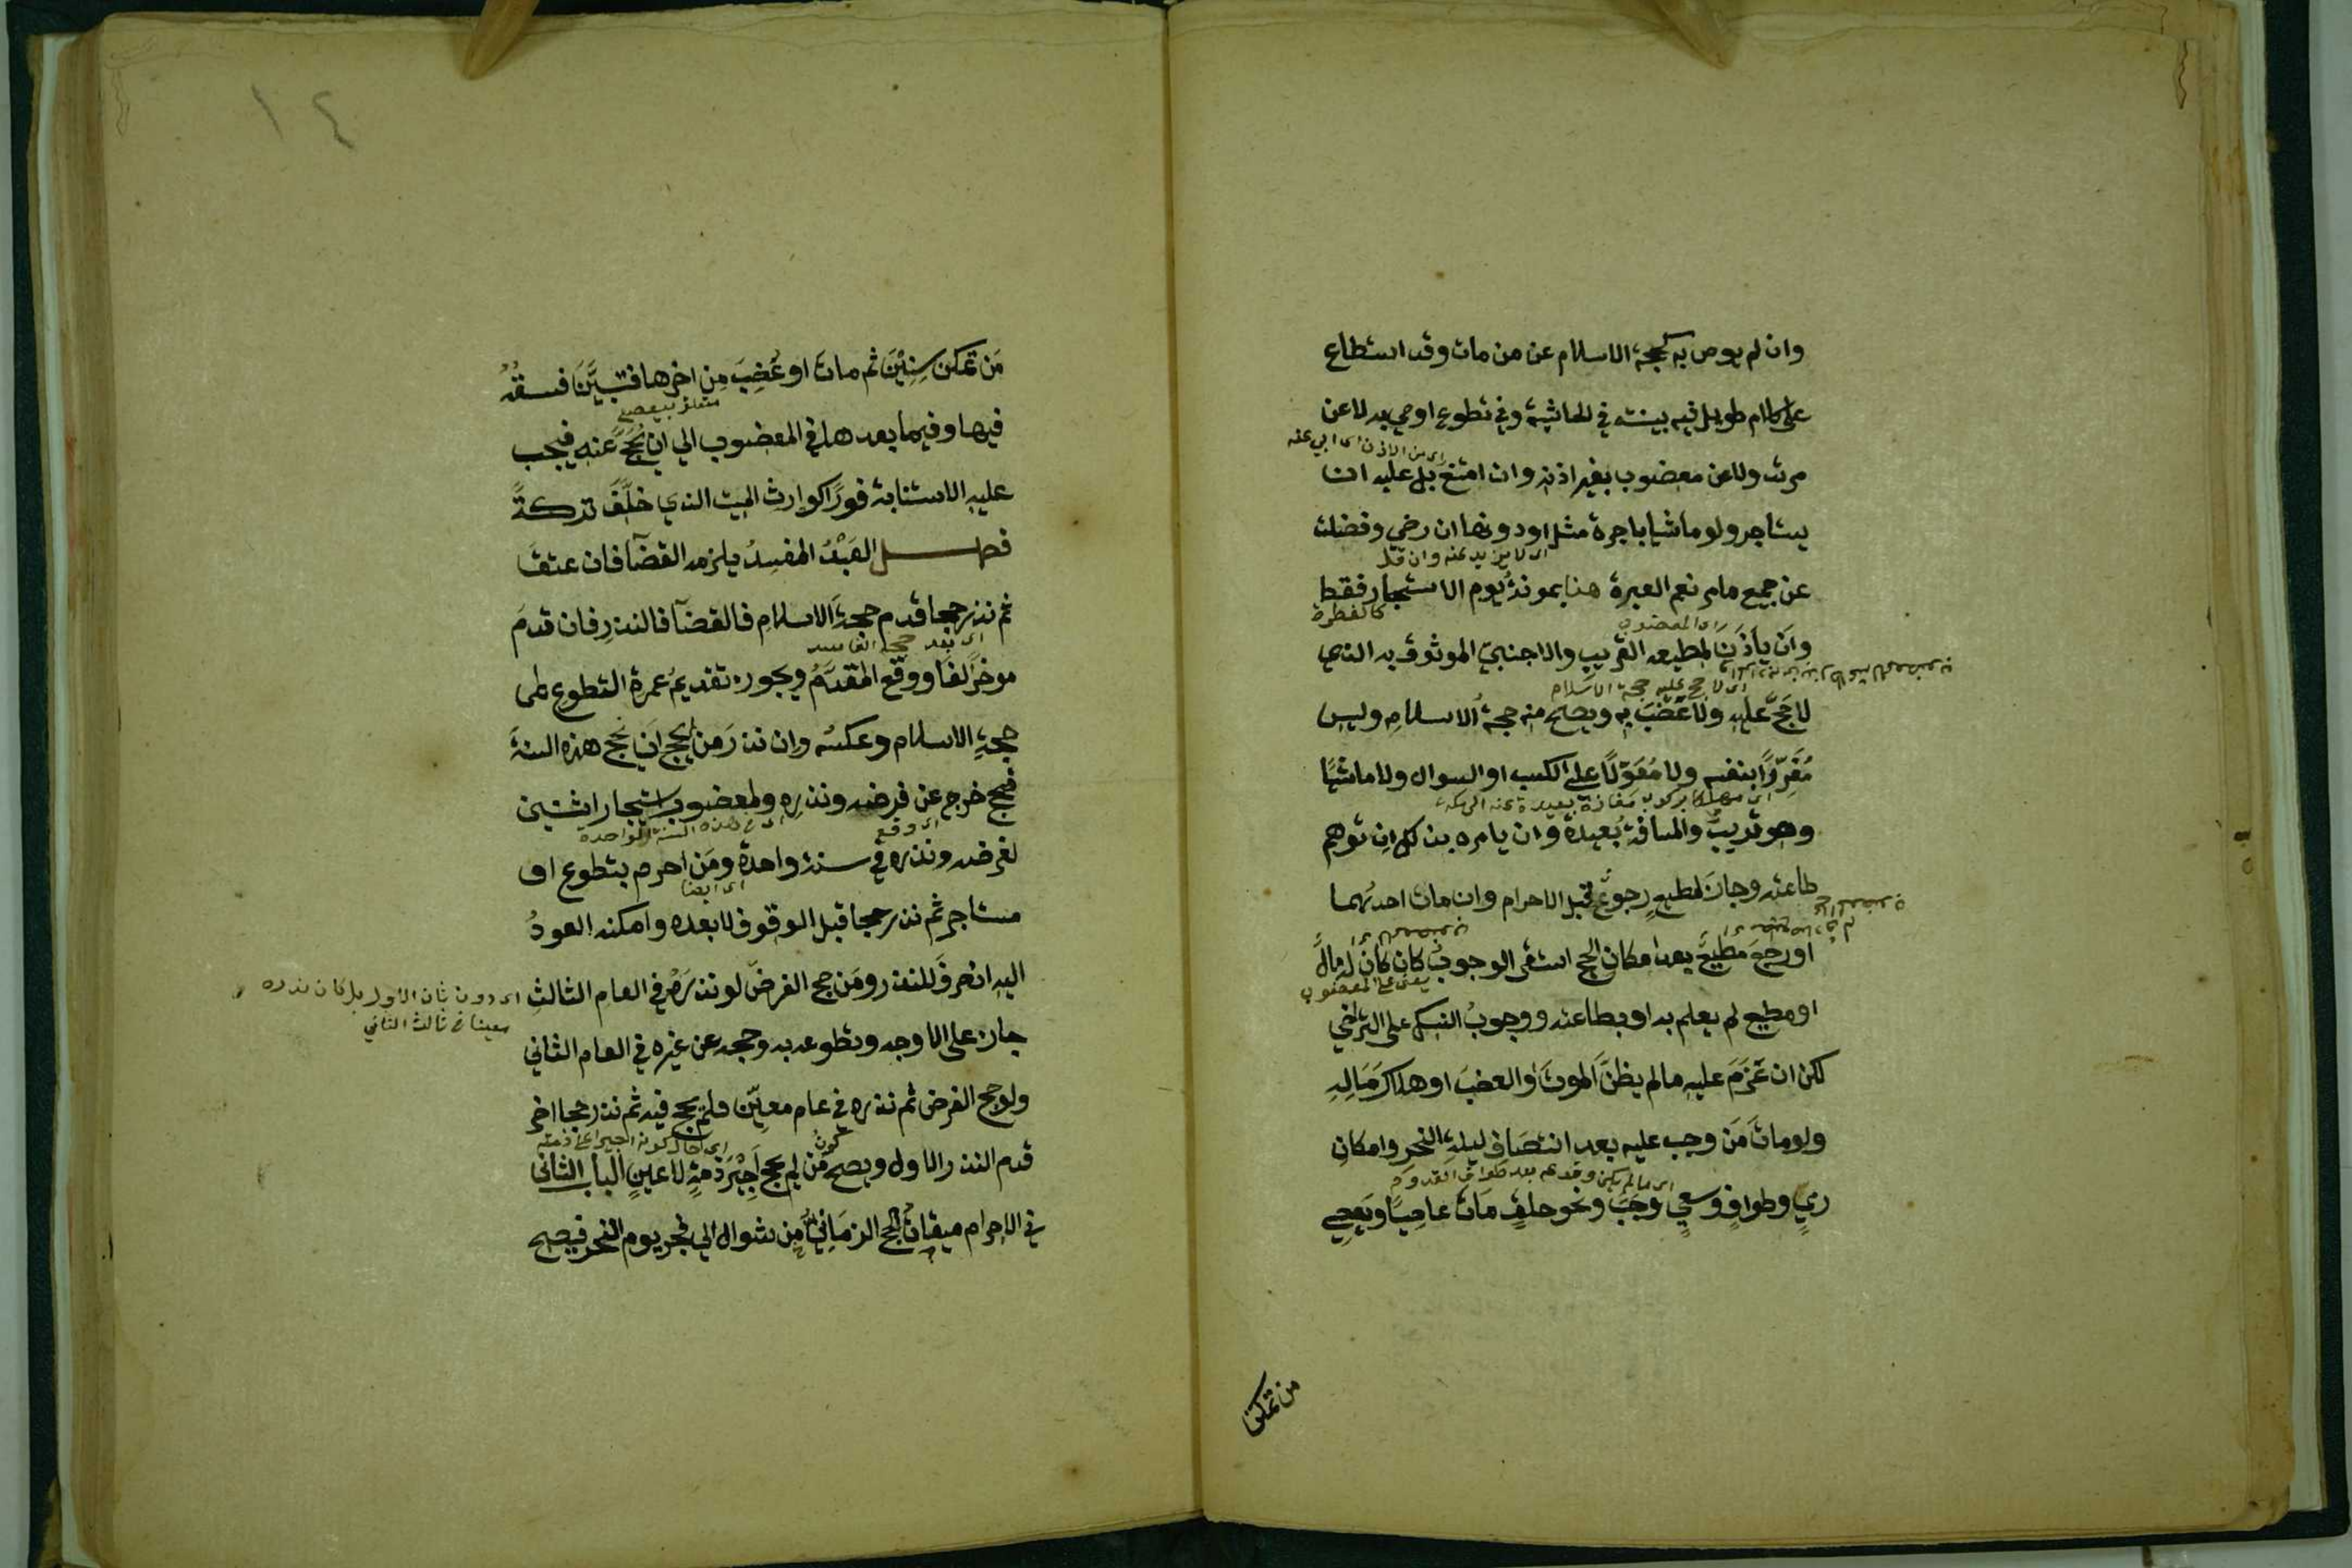 وان لم يوص به كحجة الاسلام عن من مات وقد استطاع
على كلام طويل فيه بينته في الحاشية وفي تطوع اوصي به لا عن
اي من الاذن اي ابي عنه
مرتد ولا عن معضوب بغير اذنه وان امتنع بل عليه ان
يستاجر ولو ماشيا باجرة مثل او دونها ان رضي وفضلت
اي لا يزيد عنه وان قل
عن جميع ما مر نعم العبرة هنا بمونة يوم الاستيجار فقط
كالفطرة
اي المعضوب
وان ياذن لمطيعه القريب والاجنبي الموثوق به الذي
اي لا حج عليه حجة الاسلام
لا حج عليه ولا عضب به ويصح منه حجة الاسلام وليس
مُغرِّرًا بنفسه ولا مُعَوِّلًا على الكسب او السوال ولا ماشيًا
اي مهلكا بركوب مفازة بعيدة عنه الى مكة
وهو قريب والمسافة بعيدة وان يامره بذلك ان توهم
طاعته وجاز لمطيع رجوع قبل الاحرام وان مات احدهما
او رجع مطيع بعد امكان الحج استقر الوجوب كان كان له مال
يعني على المعضوب
او مطيع لم يعلم به او بطاعته ووجوب النسك على التراخي
لكن ان عَزَمَ عليه ما لم يظن الموت او العضب او هلاك مَالِهِ
ولو مات مَن وجب عليه بعد انتصاف ليلة النحر وامكان
اي ما لم يكن وقوعه بعد طواف القدوم
رميٍ وطوافٍ وسعيٍ وجب ونحو حلقٍ مات عاصيًا ويعصي
من تمكن
١٤
مَن تمكن سِنِيْنَ ثم مات او عُضِبَ مِن اخرها فتبيَّن فسقُهُ
متعلق بيعصي
فيها وفيما بعدها في المعضوب الي ان يُحَجَّ عنه فيجب
عليه الاستنابة فورًا كوارث الميت الذي خلَّفَ تركةً
فصل العَبْدُ المفسِدُ يلزمه القضآ فان عتق
ثم نذر حجا قدم حجة الاسلام فالقضآ فالنذر فان قدم
اي بعد حجه الفاسد
موخرًا لغا ووقع المقدَّمُ ويجوز تقديمُ عمرة التطوع على
حجةِ الاسلام وعكسُه وان نذر مَن لم يحج ان يحج هذه السنةَ
فحج خرج عن فرضه ونذره ولمعضوب استيجار اثنين
اي وقع
اي في هذه السنة الواحدة
لفرضه ونذره في سنة واحدة ومَن احرم بتطوع او
اي ايضا
مستاجر ثم نذر حجا قبل الوقوف لا بعده وامكنه العودُ
اليه انصرفَ للنذر ومَن حج الفرضَ لو نذرَه في العام الثالثِ
اي دون ثان الاول بل كان نذره
معينا في ثالث الثاني
جاز على الاوجه وتطوعه به وحجه عن غيره في العام الثاني
ولو حج الفرض ثم نذره في عام معيّن فلم يحج فيه ثم نذر حجا اخر
كون
اي حال كونه اجيرا على ذمته
قدم النذر الاول ويصح مَن لم يحج اَجِيْرَ ذمةٍ لا عينٍ الباب الثاني
في الاحرام ميقات الحج الزمَاني مِن شوال الي فجر يوم النحر فيصح